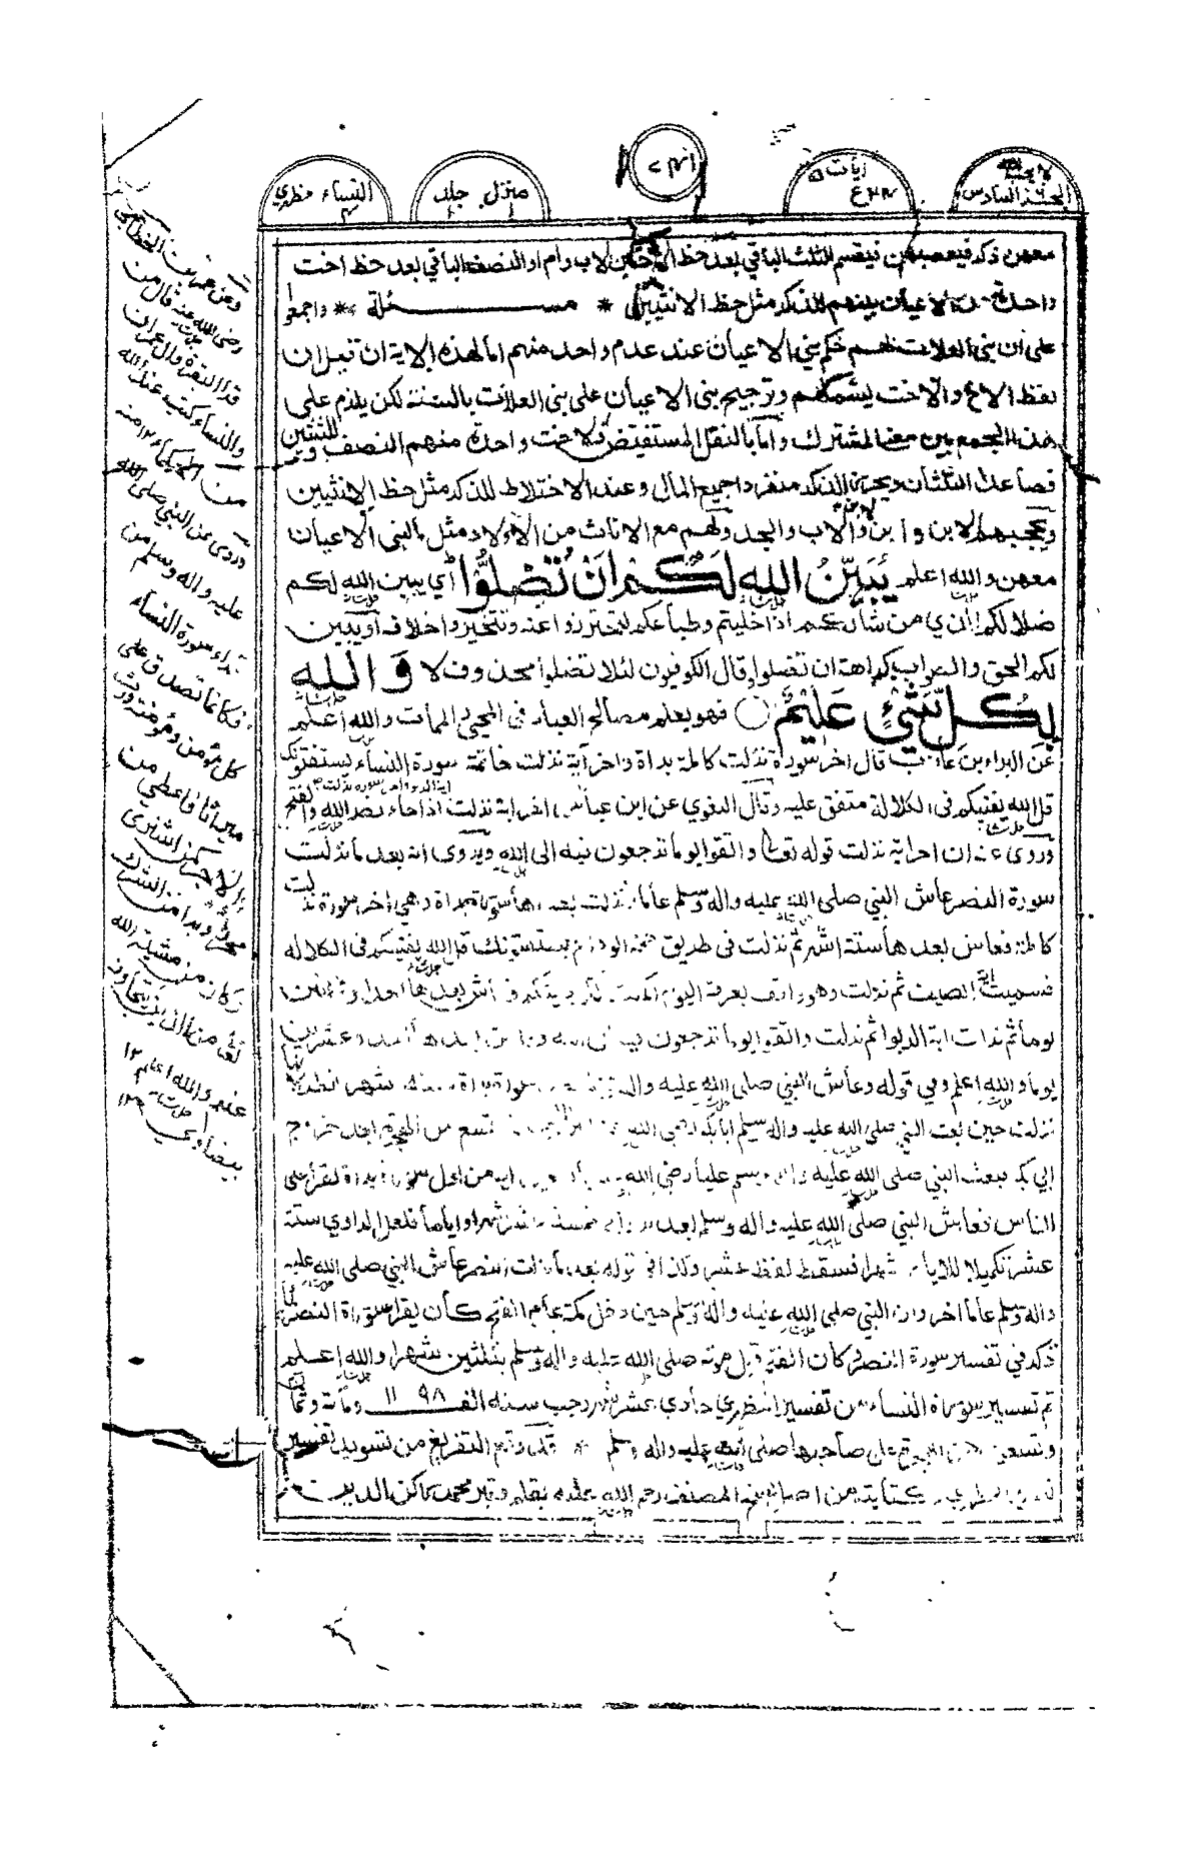 لا يحب الله
الجزء السادس
آيات ٥
النساء مظهري
منزل جلد
معهن ذكر فيعصبهن فيقسم الثلث الباقي بعد حظ الاختين لاب وام او النصف الباقي بعد حظ اخت
واحدة من الاعيان بينهم للذكر مثل حظ الانثيين * مسئلة ** واجمعوا
على ان بنى العلات لهم حكم بني الاعيان عند عدم واحد منهم اما لهذه الاية ان قيل ان
لفظ الاخ والاخت يشملهم وترجيح بنى الاعيان على بنى العلات بالسنة لكن يلزم على
هذا الجمع بين معنى المشترك واما بالنقل المستفيض فلاخت واحدة منهم النصف وللثنتين
فصاعدا الثلثان ويحرز الذكر منفردا جميع المال وعند الاختلاط للذكر مثل حظ الانثيين
ويحجبهم الابن وابن الابن والاب والجد ولهم مع الاناث من الاولاد مثل ما لبنى الاعيان
معهن والله اعلم يُبَيِّنُ اللّٰه لَكُمْ اَنْ تَضِلُّوْا اي يبين الله لكم
ضلالكم الذي من شانكم اذا خليتم وطباعكم لتحترزوا عنه وتتحيروا خلافه او يبين
لكم الحق والصواب كراهة ان تضلوا وقال الكوفيون لئلا تضلوا محذوف لا وَاللّٰه
بِكُلِّ شَيْءٍ عَلِيْمٌ ○ فهو يعلم مصالح العباد فى المحيى والممات والله اعلم
عن البراء بن عازب قال اخر سورة نزلت كاملة براة واخر آية نزلت خاتمة سورة النساء يستفتونك
قل الله يفتيكم فى الكلالة متفق عليه وقال البغوي عن ابن عباس ان اخر اية نزلت اية الربوا واخر سورة نزلت اذا جاء نصر الله والفتح
وروى عنه ان اخر اية نزلت قوله تعالى واتقوا يوما ترجعون فيه الى الله ويروى انه بعد ما نزلت
سورة النصر عاش النبي صلى الله عليه واله وسلم عاما ونزلت بعدها سورة براة وهى اخر سورة نزلت
كاملة فعاش بعدها ستة اشهر ثم نزلت فى طريق حجة الوداع يستفتونك قل الله يفتيكم فى الكلالة
فسميت اية الصيف ثم نزلت وهو واقف بعرفة اليوم اكملت لكم دينكم فعاش بعدها احدا وثمانين
يوما ثم نزلت اية الربوا ثم نزلت واتقوا يوما ترجعون فيه الى الله فعاش بعدها احدا وعشرين
يوما والله اعلم وفي قوله وعاش النبي صلى الله عليه واله بعد سورة براة ستة اشهر نظر لانها
نزلت حين بعث النبي صلى الله عليه واله وسلم ابابكر رضي الله عنه سنة تسع من الهجرة بعد خروج
ابي بكر بعث النبي صلى الله عليه واله وسلم عليا رضي الله اية من اول سورة براة لتقرأ على
الناس فعاش النبي صلى الله عليه واله وسلم بعد خمسة عشر شهرا واياما فلعل الراوي ستة
عشر تكميلا للايام شهرا فسقط لفظ عشر وكذا في قوله بعد ما نزلت النصر عاش النبي صلى الله عليه
واله وسلم عاما اخر وارد النبي صلى الله عليه واله وسلم حين دخل مكة عام الفتح كان يقرأ سورة النصر لما
نذكر في تفسير سورة النصر وكان الفتح قبل موته صلى الله عليه واله وسلم بثلثين شهرا والله اعلم
تم تفسير سورة النساء من تفسير المظهري حادي عشر شهر رجب سنة الف ١١٩٨ ومائة وثمان
وتسعين من الهجرة على صاحبها صلى الله عليه واله وسلم * قد وقع التفريغ من تسويد تفسير
كتابته من اصله المصنف رحم الله عليه بقلم
وعن عمر بن الخطاب
رضى الله عنه قال من
قرا البقرة وال عمران
والنساء كتب عند الله
من الحكماء ١٢ منه
وروى عن النبي صلى الله
عليه واله وسلم من
قراء سورة النساء
فكانما تصدق على
كل مؤمن ومؤمنة ورث
ميراثا واعطي من
الاجر كمن اشترى
محررا وبرا من الشرك
وكان من مشية الله
تعالى من الذين يتجاوز
عنهم والله اعلم ١٢
بيضاوي